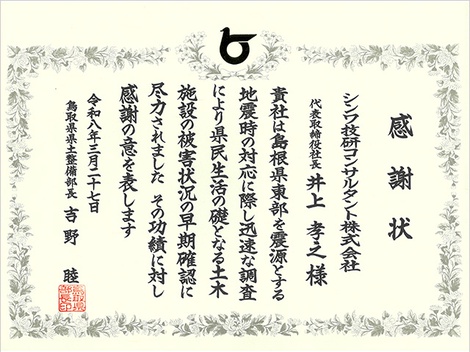 感謝状
シンワ技研コンサルタント株式会社
代表取締役社長 井上孝之様
貴社は島根県東部を震源とする
地震時の対応に際し迅速な調査
により県民生活の礎となる土木
施設の被害状況の早期確認に
尽力されました その功績に対し
感謝の意を表します
令和八年三月二十七日
鳥取県県土整備部長 吉野 睦